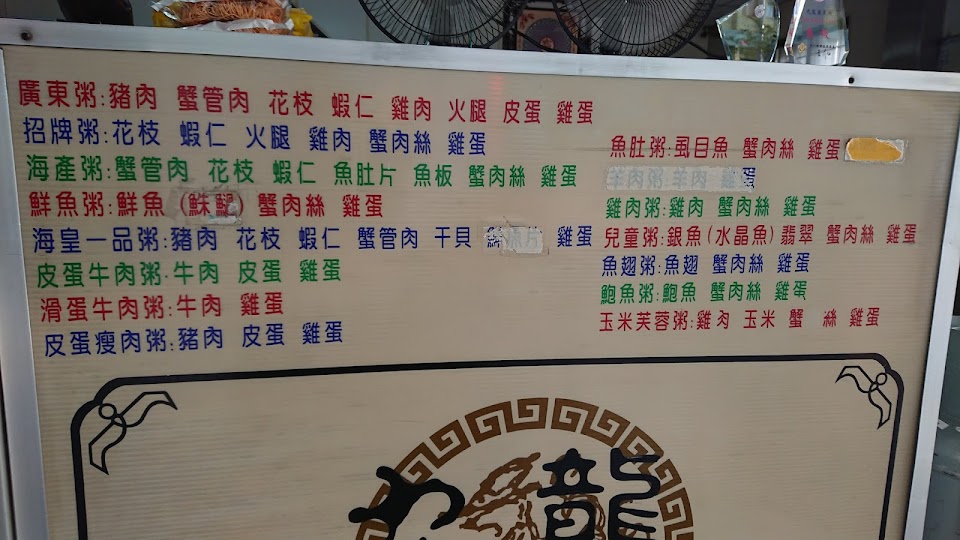 廣東粥:豬肉 蟹管肉 花枝 蝦仁 雞肉 火腿 皮蛋 雞蛋
招牌粥:花枝 蝦仁 火腿 雞肉 蟹肉絲 雞蛋
海產粥:蟹管肉 花枝 蝦仁 魚肚片 魚板 蟹肉絲 雞蛋
鮮魚粥:鮮魚 蟹肉絲 雞蛋
海皇一品粥:豬肉 花枝 蝦仁 蟹管肉 干貝 雞蛋
皮蛋牛肉粥:牛肉 皮蛋 雞蛋
滑蛋牛肉粥:牛肉 雞蛋
皮蛋瘦肉粥:豬肉 皮蛋 雞蛋
魚肚粥:虱目魚 蟹肉絲 雞蛋
羊肉粥 羊肉 雞蛋
雞肉粥:雞肉 蟹肉絲 雞蛋
兒童粥:銀魚(水晶魚)翡翠 蟹肉絲 雞蛋
魚翅粥:魚翅 蟹肉絲 雞蛋
鮑魚粥:鮑魚 蟹肉絲 雞蛋
玉米芙蓉粥:雞肉 玉米 蟹 絲 雞蛋
九龍